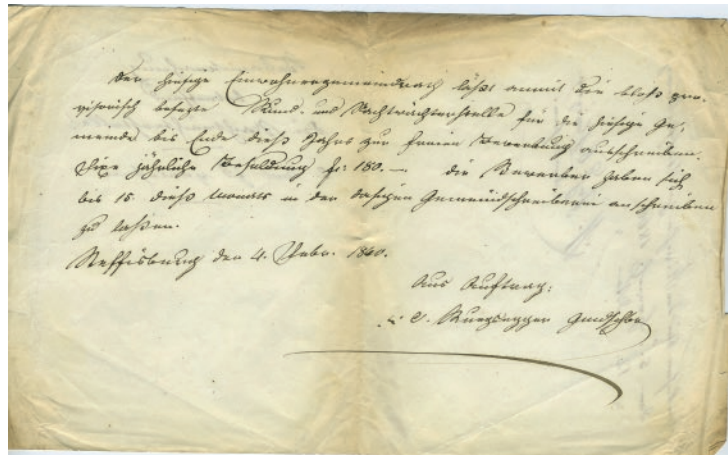 Der hiesige Einwohnergemeindrath läßt anmit die bloß pro-
visorisch besezte Rund- und Nachtwächterstelle für die hiesige Ge-
meinde bis Ende dieß Jahrs zur freien Bewerbung ausschreiben.
Fixe jährliche Besoldung fr. 180.— die Bewerber haben sich
bis 15. dieß Monats in der dasigen Gemeindschreiberei anschreiben
zu laßen.
Steffisburg den 4. Febr. 1860.
Aus Auftrag:
Ruegsegger Gmdschbr